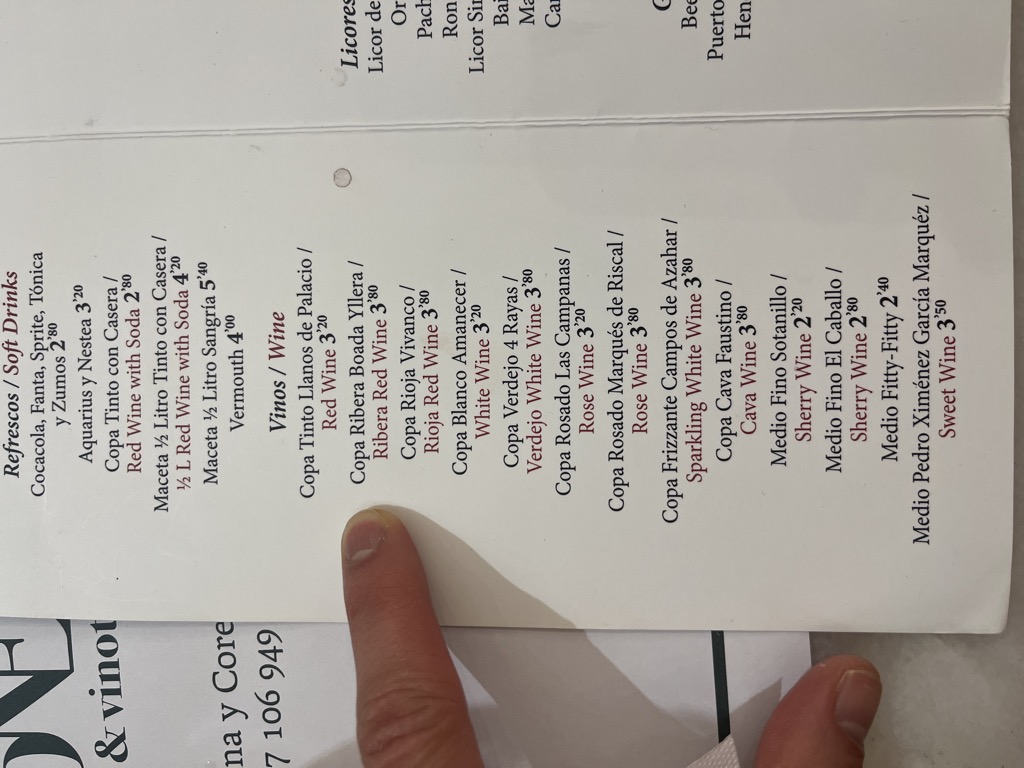 Refrescos / Soft Drinks
Cocacola, Fanta, Sprite, Tónica
y Zumos 2'80
Aquarius y Nestea 3'20
Copa Tinto con Casera /
Red Wine with Soda 2'80
Maceta ½ Litro Tinto con Casera /
½ L Red Wine with Soda 4'20
Maceta ½ Litro Sangría 5'40
Vermouth 4'00
Vinos / Wine
Copa Tinto Llanos de Palacio /
Red Wine 3'20
Copa Ribera Boada Yllera /
Ribera Red Wine 3'80
Copa Rioja Vivanco /
Rioja Red Wine 3'80
Copa Blanco Amanecer /
White Wine 3'20
Copa Verdejo 4 Rayas /
Verdejo White Wine 3'80
Copa Rosado Las Campanas /
Rose Wine 3'20
Copa Rosado Marqués de Riscal /
Rose Wine 3'80
Copa Frizzante Campos de Azahar /
Sparkling White Wine 3'80
Copa Cava Faustino /
Cava Wine 3'80
Medio Fino Sotanillo /
Sherry Wine 2'20
Medio Fino El Caballo /
Sherry Wine 2'80
Medio Fitty-Fitty 2'40
Medio Pedro Ximénez García Marquéz /
Sweet Wine 3'50
Licores
Licor de
Ron
Licor
Puerto
& vinot
na y Core
7 106 949